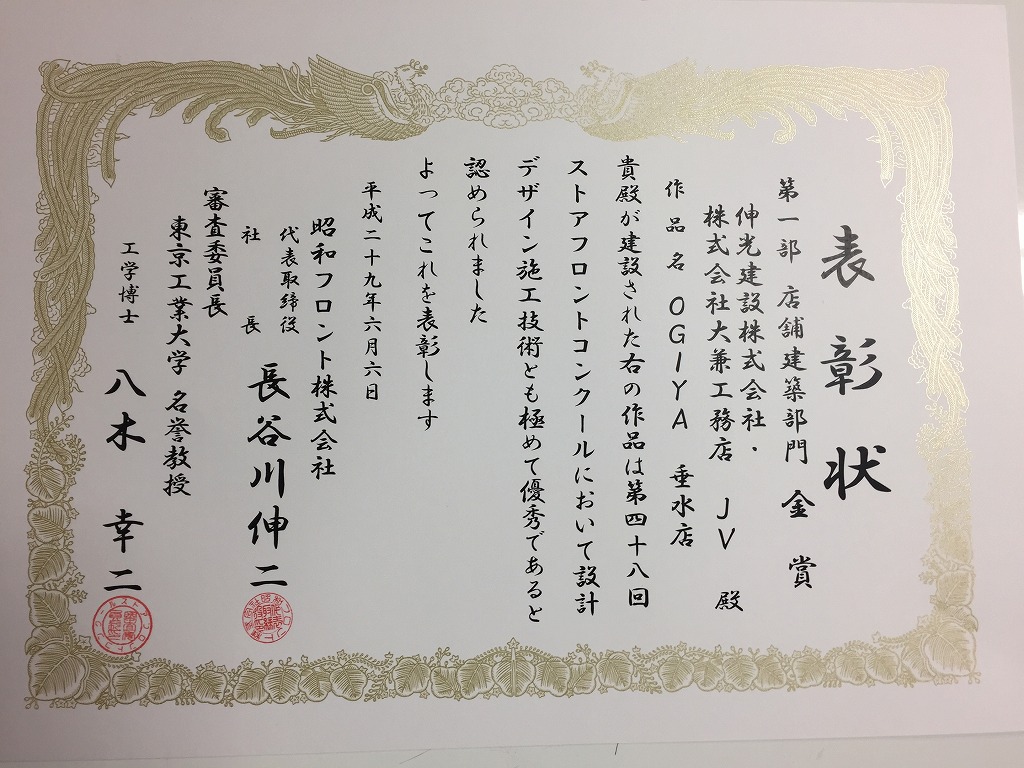 表彰状
第一部 店舗建築部門 金賞
伸光建設株式会社・
株式会社大兼工務店 JV 殿
作品名 OGIYA 垂水店
貴殿が建設された右の作品は第四十八回
ストアフロントコンクールにおいて設計
デザイン施工技術とも極めて優秀であると
認められました
よってこれを表彰します
平成二十九年六月六日
昭和フロント株式会社
代表取締役
社長 長谷川伸二
審査委員長
東京工業大学 名誉教授
工学博士 八木幸二